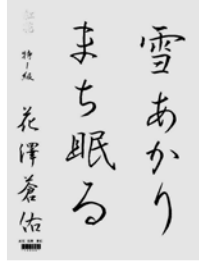 雪あかり
まち眠る
特J級 花澤蒼佑